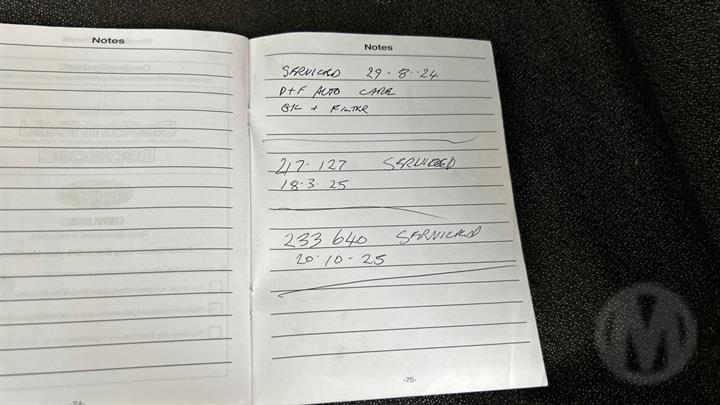 Notes
Notes
SERVICED 29-8-24
D+F AUTO CARE
OIL + FILTER
217-127 SERVICED
18-3-25
233640 SERVICED
20-10-25
-74-
-75-
M